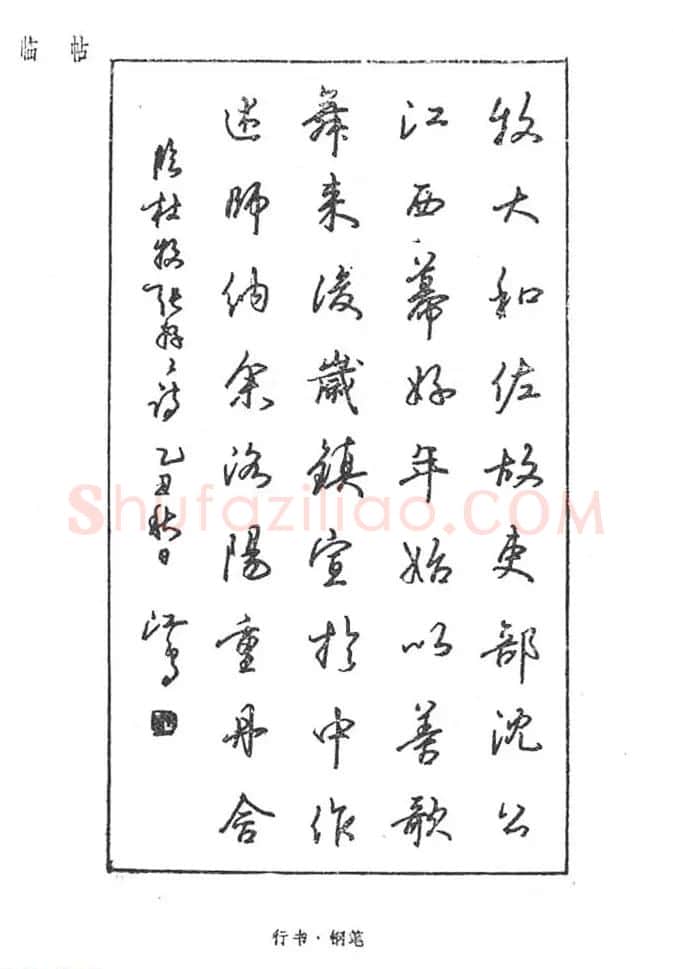 临 帖
牧大和佐故吏部沈公
江西幕好年始以善歌
舞来後歲鎮宣於中作
述師納余洛陽重丹合
临杜牧张好〻诗 乙丑秋日 江
行书·钢笔
Shufaziliao.COM